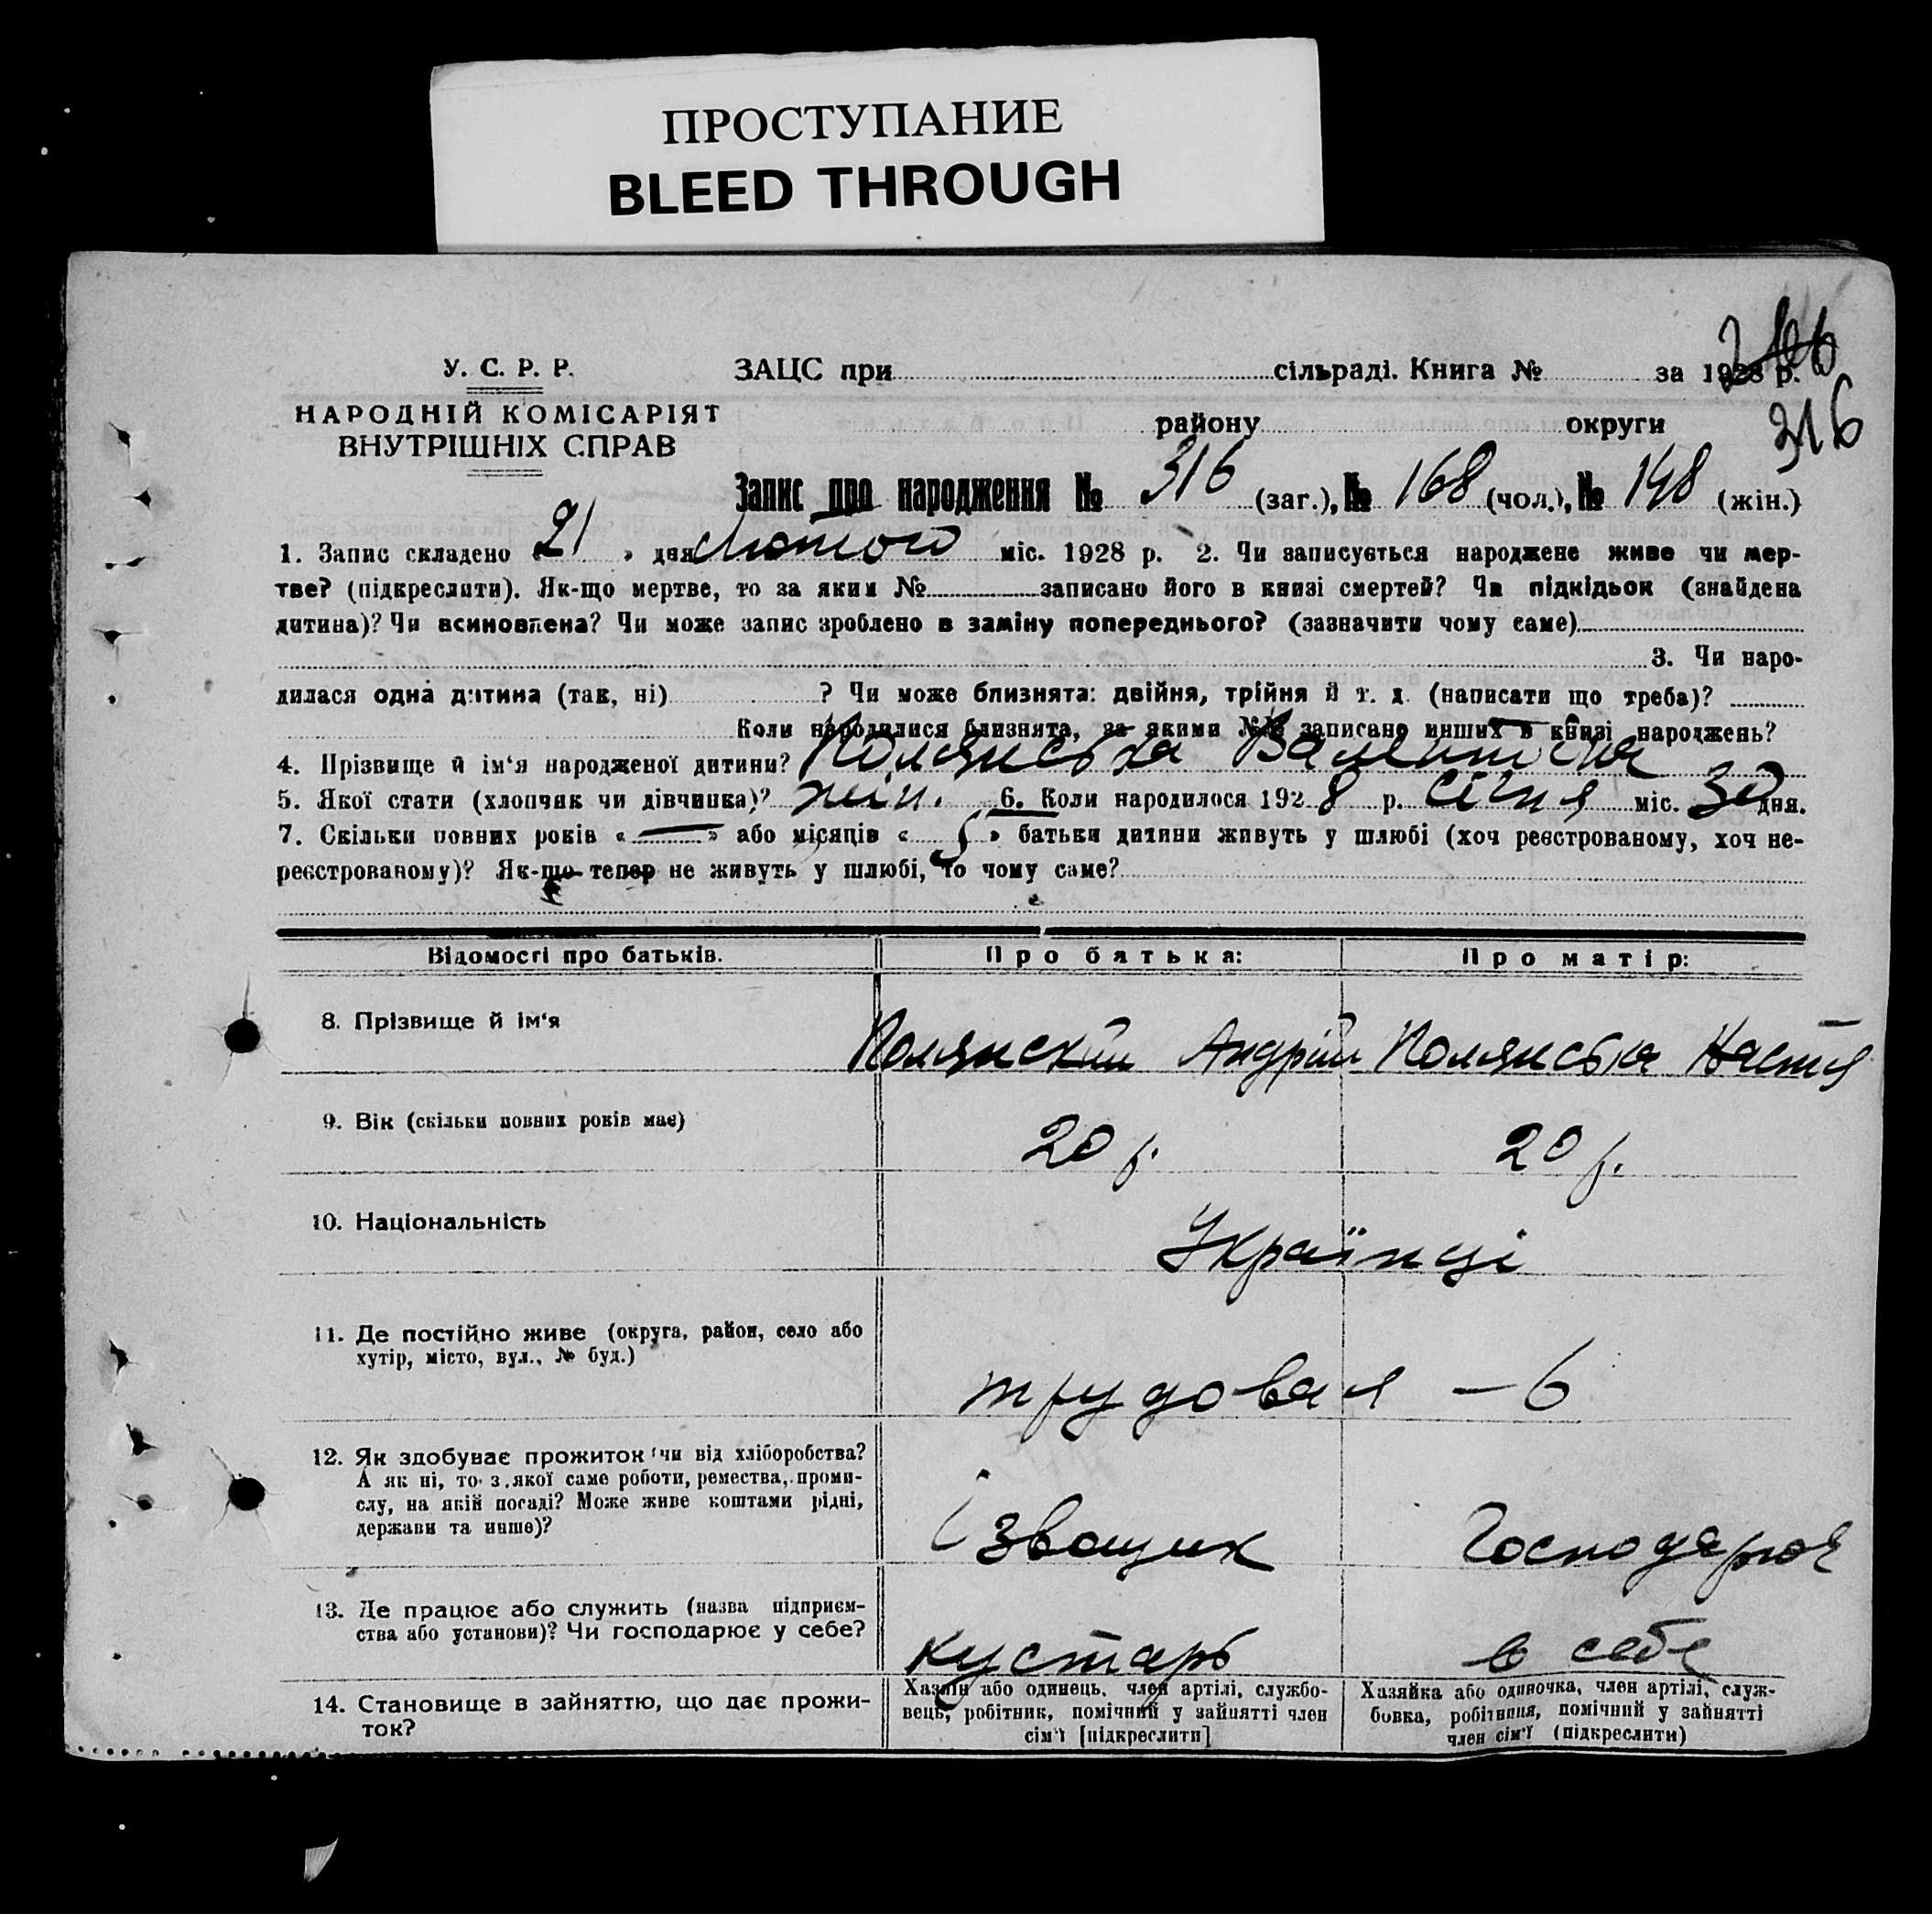 ПРОСТУПАНИЕ
BLEED THROUGH
316
У. С. Р. Р.
ЗАЦС при сільраді. Книга № за 1928 р.
НАРОДНІЙ КОМІСАРІЯТ
ВНУТРІШНІХ СПРАВ
району округи
316
Запис про народження № 316 (заг.), № 168 (чол.), № 148 (жін.)
1. Запис складено « 21 » дня Лютого міс. 1928 р. 2. Чи записується народжене живе чи мер-
тве? (підкреслити). Як-що мертве, то за яким № записано його в книзі смертей? Чи підкідьок (знайдена
дитина)? Чи всиновлена? Чи може запис зроблено в заміну попереднього? (зазначити чому саме)
3. Чи наро-
дилася одна дитина (так, ні) ? Чи може близнята: двійня, трійня й т. д. (написати що треба)?
Коли народилися близнята, за якими №№ записано инших в книзі народжень?
4. Прізвище й ім‘я народженої дитини? Полянська Валентина
5. Якої стати (хлопчик чи дівчинка)? жін. 6. Коли народилося 1928 р. Січня міс. 30 дня.
7. Скільки повних років « — » або місяців « » батьки дитини живуть у шлюбі (хоч реєстрованому, хоч не-
реєстрованому)? Як-що тепер не живуть у шлюбі, то чому саме?
Відомості про батьків. Про батька: Про матір:
8. Прізвище й ім‘я Полянский Андрій Полянська Настя
9. Вік (скільки повних років має) 20 р. 20 р.
10. Національність Українці
11. Де постійно живе (округа, район, село або
хутір, місто, вул., № буд.) трудовая – 6
12. Як здобуває прожиток (чи від хліборобства?
А як ні, то з якої саме роботи, ремества, проми-
слу, на якій посаді? Може живе коштами рідні,
держави та инше)? Ізвощик Господарює
13. Де працює або служить (назва підприєм-
ства або установи)? Чи господарює у себе? кустарь в себе
14. Становище в зайняттю, що дає прожи-
ток?
Хазяїн або одинець, член артілі, службо-
вець, робітник, помічний у зайнятті член
сім‘ї [підкреслити]
Хазяйка або одиночка, член артілі, служ-
бовка, робітниця, помічний у зайнятті
член сім‘ї (підкреслити)